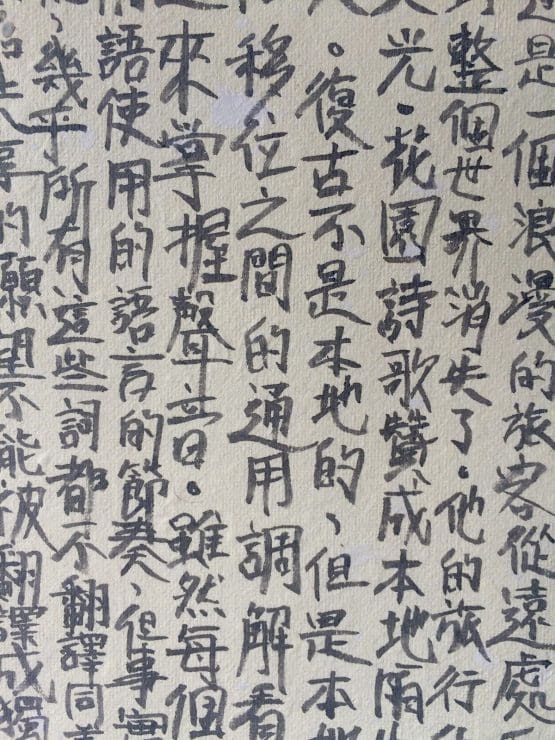 是一個浪漫的旅客從遠處
整個世界消失了。他的旅行
光。花園詩歌贊成本地
。復古不是本地的、但是本
移位之間的通用調解看
來掌握聲音。雖然每個
語使用的語言的節奏、但事實
、幾乎所有這些詞都不翻譯同
享的願望不能被翻譯成獨